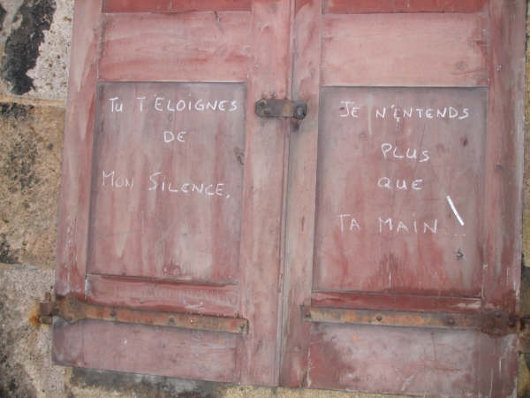 Tu T'ÉLOIGNES
DE
MON SILENCE.
JE N'ENTENDS
PLUS
QUE
TA MAIN